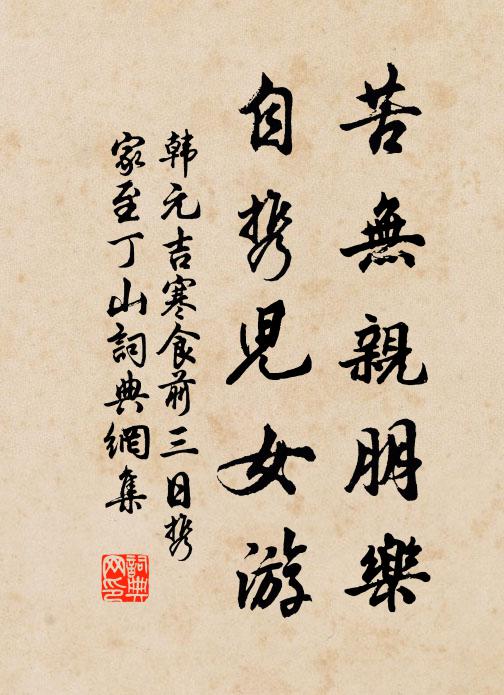 苦無親朋樂
自携兒女游
韓元吉寒食前三日携
家至丁山詞典網集
詞典
网印